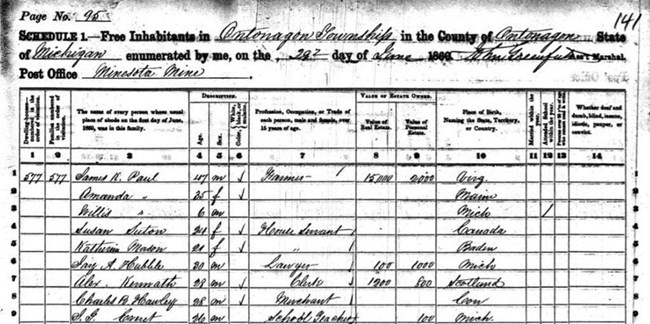 Page No. 95
141
SCHEDULE 1.—Free Inhabitants in Ontonagon Township in the County of Ontonagon State
of Michigan enumerated by me, on the 29th day of June 1860. Ass't Marshal.
Post Office Minesota Mine
DESCRIPTION. VALUE OF ESTATE OWNED.
Dwelling-houses—numbered in the order of visitation. Families numbered in the order of visitation. The name of every person whose usual place of abode on the first day of June, 1860, was in this family. Age. Sex. Color, Profession, Occupation, or Trade of each person, male and female, over 15 years of age. Value of Real Estate. Value of Personal Estate. Place of Birth, Naming the State, Territory, or Country. Married within the year. Attended School within the year. Whether deaf and dumb, blind, insane, idiotic, pauper, or convict.
1 2 3 4 5 6 7 8 9 10 11 12 13 14
1 577 577 James K. Paul 47 m Farmer 15,000 2000 Virg. 1
2 Amanda " 25 f Maine 2
3 Willis " 6 m Mich 3
4 Susan Suton 24 f House Servant Canada 4
5 Katherine Mason 21 f " Baden 5
6 Jay A. Hubble 30 m Lawyer 100 1000 Mich 6
7 Alex. 28 m Clerk 1200 800 Scotland 7
8 Charles B. Hawley 28 m Merchant Con 8
9 S. G. 26 m School Teacher 100 Mich. 9